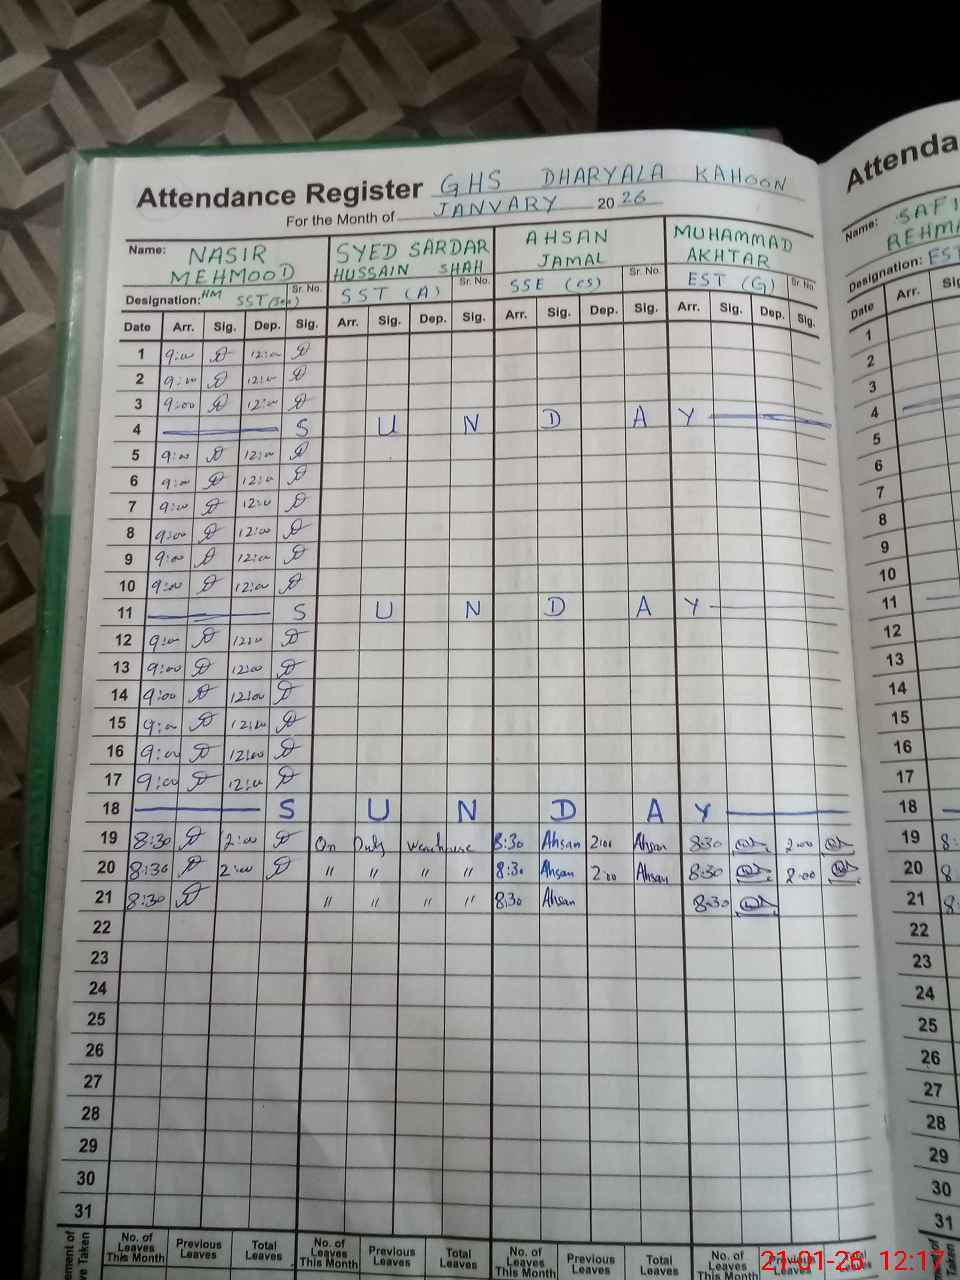 Attendance Register GHS DHARYALA KAHOON
For the Month of JANVARY 20 26
Name: NASIR MEHMOOD SYED SARDAR HUSSAIN SHAH AHSAN JAMAL MUHAMMAD AKHTAR
Designation: HM SST Sr. No. SST (A) Sr. No. SSE (CS) Sr. No. EST (G) Sr. No.
Date Arr. Sig. Dep. Sig. Arr. Sig. Dep. Sig. Arr. Sig. Dep. Sig. Arr. Sig. Dep. Sig.
1 9:00 12:00
2 9:00 12:00
3 9:00 12:00
4 S U N D A Y
5 9:00 12:00
6 9:00 12:00
7 9:00 12:00
8 9:00 12:00
9 9:00 12:00
10 9:00 12:00
11 S U N D A Y
12 9:00 12:00
13 9:00 12:00
14 9:00 12:00
15 9:00 12:00
16 9:00 12:00
17 9:00 12:00
18 S U N D A Y
19 8:30 2:00 On Duty 8:30 Ahsan 2:00 Ahsan 8:30 2:00
20 8:30 2:00 " " " " 8:30 Ahsan 2:00 Ahsan 8:30 2:00
21 8:30 " " " " 8:30 Ahsan 8:30
22
23
24
25
26
27
28
29
30
31
No. of Leaves This Month Previous Leaves Total Leaves No. of Leaves This Month Previous Leaves Total Leaves No. of Leaves This Month Previous Leaves Total Leaves No. of Leaves This Month Previous Leaves
Attenda
Name: SAFI
REHMA
Designation: EST
Date Arr. Sig
1
2
3
4
5
6
7
8
9
10
11
12
13
14
15
16
17
18
19 8:
20 8
21 8:
22
23
24
25
26
27
28
29
30
31
21-01-26 12:17